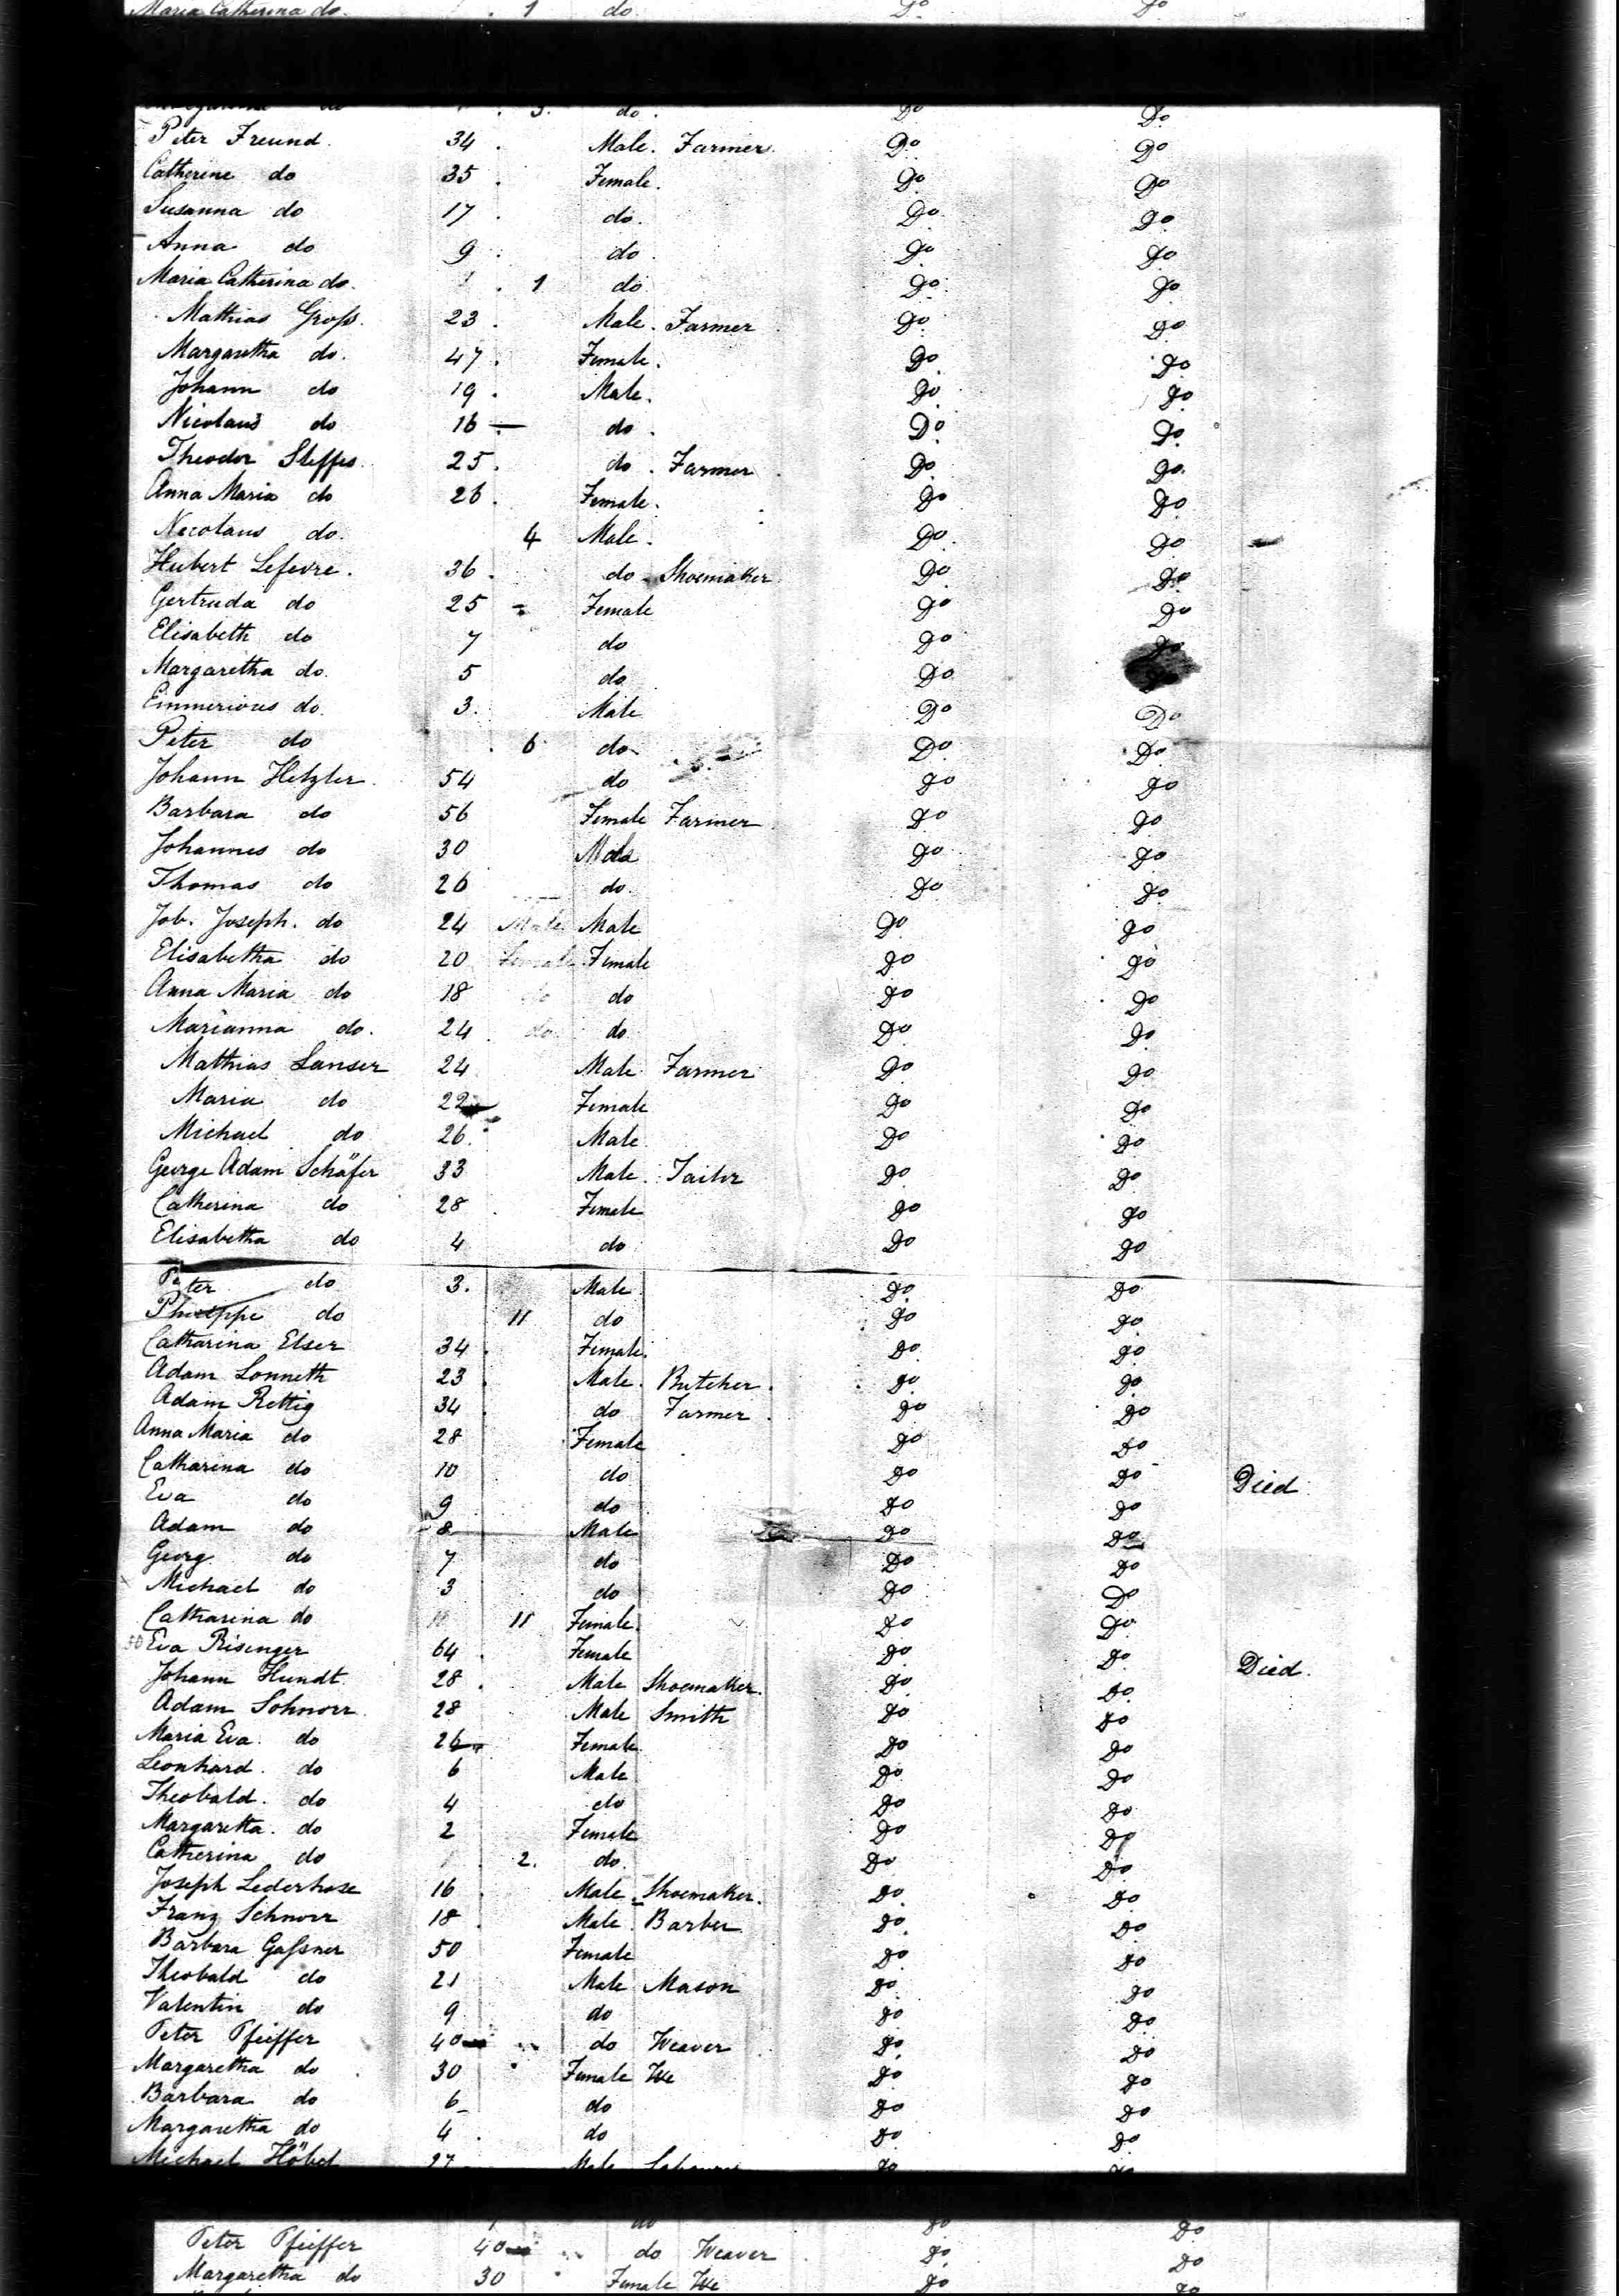 Maria Catherina do. 1 do. Do Do
3. do. Do Do
Peter Freund. 34. Male. Farmer. Do Do
Catherine do 35. Female. Do Do
Susanna do 17. do. Do Do
Anna do 9. do Do Do
Maria Catherina do. 1 do Do Do
Mathias Groß. 23. Male. Farmer Do Do
Margaretha do. 47. Female. Do Do
Johann do 19. Male. Do Do
Nicolaus do 16 — do. Do Do
Theodor Steffes 25. do. Farmer Do Do
Anna Maria do 26. Female. Do Do
Nicolaus do. 4 Male. Do Do
Hubert Lefevre. 36. do Shoemaker Do Do
Gertruda do 25 Female Do Do
Elisabeth do 7 do Do Do
Margaretha do. 5 do Do
Emmerious do. 3. Male Do Do
Peter do 6 do Do Do
Johann Hetzler. 54 do Do Do
Barbara do 56 Female Farmer Do Do
Johannes do 30 Male Do Do
Thomas do 26 do. Do Do
Job. Joseph. do 24 Male Male Do Do
Elisabetha do 20 Female Female Do Do
Anna Maria do 18 do do Do Do
Marianna do. 24 do do Do Do
Mathias Lanser 24 Male Farmer Do Do
Maria do 22 Female Do Do
Michael do 26. Male Do Do
George Adam Schäfer 33 Male. Tailor Do Do
Catherina do 28 Female Do Do
Elisabetha do 4 do Do Do
Peter do 3. Male Do Do
Philippe do 11 do Do Do
Catharina Elser 34. Female. Do Do
Adam Lonneth 23. Male. Butcher. Do Do
Adam Rettig 34. do Farmer. Do Do
Anna Maria do 28 Female Do Do
Catharina do 10 do Do Do Died
Eva do 9 do Do Do
Adam do 8 Male Do Do
Georg do 7 do Do Do
Michael do 3 do Do Do
Catharina do 11 Female. Do Do
50 Eva Risenger 64. Female Do Do Died.
Johann Hundt 28. Male Shoemaker. Do Do
Adam Schnorr 28 Male Smith Do Do
Maria Eva. do 26 Female Do Do
Leonhard. do 6 Male Do Do
Theobald. do 4 do Do Do
Margaretta. do 2 Female Do Do
Catherina do 2. do. Do Do
Joseph Lederhose 16 Male Shoemaker. Do Do
Franz Schnorr 18. Male. Barber Do Do
Barbara Gaßner 50 Female Do Do
Theobald do 21 Male Mason Do Do
Valentin do 9 do Do Do
Peter Pfeiffer 40 do Weaver Do Do
Margaretha do 30 Female We Do Do
Barbara do 6 do Do Do
Margaretha do 4. do Do Do
Michael Höbel 27 Male Do Do
do Do Do
Peter Pfeiffer 40 do Weaver Do Do
Margaretha do 30 Female We Do Do